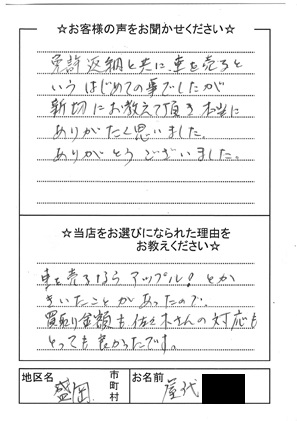 ☆お客様の声をお聞かせください☆
免許返納と共に、車を売ると
いうはじめての事でしたが
親切にお教えて頂き本当に
ありがたく思いました。
ありがとうございました。
☆当店をお選びになられた理由を
お教えください☆
車を売るならアップル!とか
きいたことがあったので。
買取り金額も佐々木さんの対応も
とっても良かったです。
地区名 盛岡 市町村 お名前 屋代